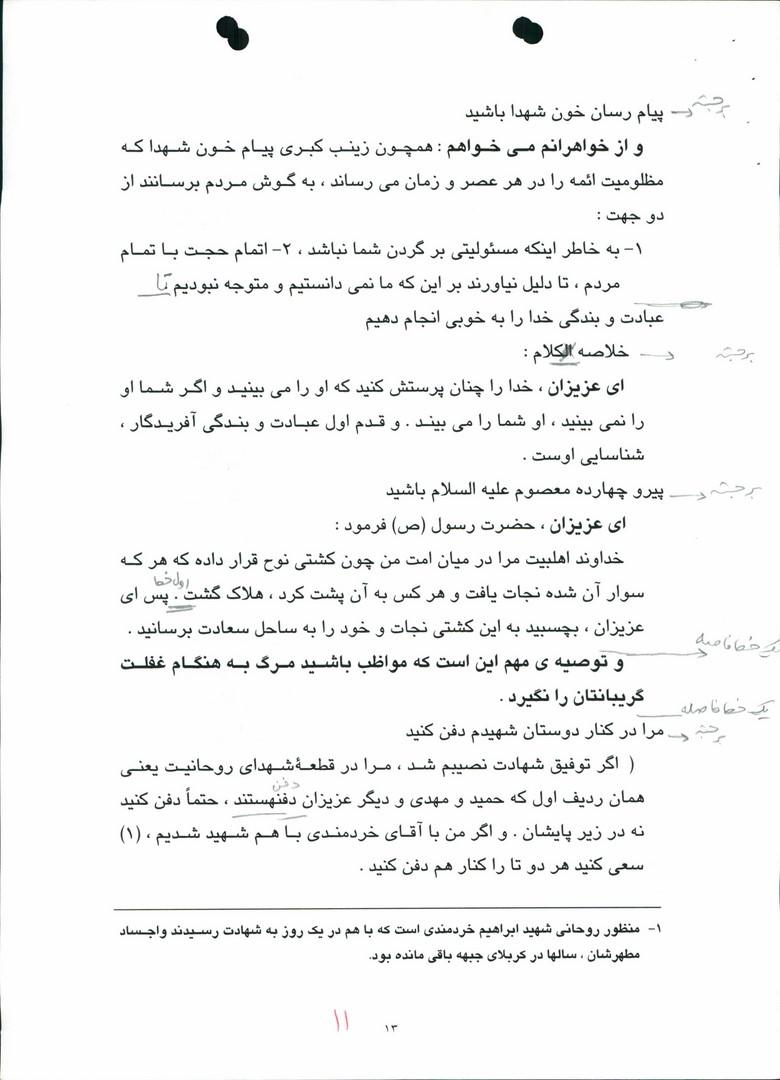 پیام رسان خون شهدا باشید برجسته
و از خواهرانم می خواهم : همچون زینب کبری پیام خون شهدا که
مظلومیت ائمه را در هر عصر و زمان می رساند ، به گوش مردم برسانند از
دو جهت :
۱- به خاطر اینکه مسئولیتی بر گردن شما نباشد ، ۲- اتمام حجت با تمام
مردم ، تا دلیل نیاورند بر این که ما نمی دانستیم و متوجه نبودیم تا
عبادت و بندگی خدا را به خوبی انجام دهیم
خلاصه الکلام : برجسته
ای عزیزان ، خدا را چنان پرستش کنید که او را می بینید و اگر شما او
را نمی بینید ، او شما را می بیند . و قدم اول عبادت و بندگی آفریدگار ،
شناسایی اوست .
پیرو چهارده معصوم علیه السلام باشید برجسته
ای عزیزان ، حضرت رسول (ص) فرمود :
خداوند اهلبیت مرا در میان امت من چون کشتی نوح قرار داده که هر که
سوار آن شده نجات یافت و هر کس به آن پشت کرد ، هلاک گشت . پس ای
اول خط
عزیزان ، بچسبید به این کشتی نجات و خود را به ساحل سعادت برسانید .
یک خط فاصله
و توصیه ی مهم این است که مواظب باشید مرگ به هنگام غفلت
گریبانتان را نگیرد .
یک خط فاصله
مرا در کنار دوستان شهیدم دفن کنید برجسته
( اگر توفیق شهادت نصیبم شد ، مرا در قطعهٔ شهدای روحانیت یعنی
همان ردیف اول که حمید و مهدی و دیگر عزیزان دفنهستند ، حتماً دفن کنید
دفن
نه در زیر پایشان . و اگر من با آقای خردمندی با هم شهید شدیم ، (۱)
سعی کنید هر دو تا را کنار هم دفن کنید .
۱- منظور روحانی شهید ابراهیم خردمندی است که با هم در یک روز به شهادت رسیدند واجساد
مطهرشان ، سالها در کربلای جبهه باقی مانده بود.
۱۳
۱۱